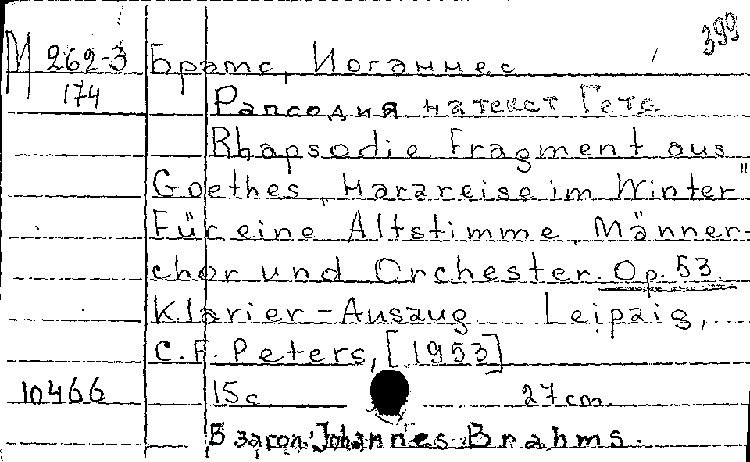 399
М 262-3 Брамс, Иоганнес
174 Рапсодия на текст Гете
Rhapsodie Fragment aus
Goethes „Harzreise im Winter"
Für eine Altstimme, Männer-
chor und Orchester. Op. 53.
Klavier-Auszug Leipzig,
C. F. Peters, [1953]
10466 15 с 27 cm.
В загол: Johannes Brahms.